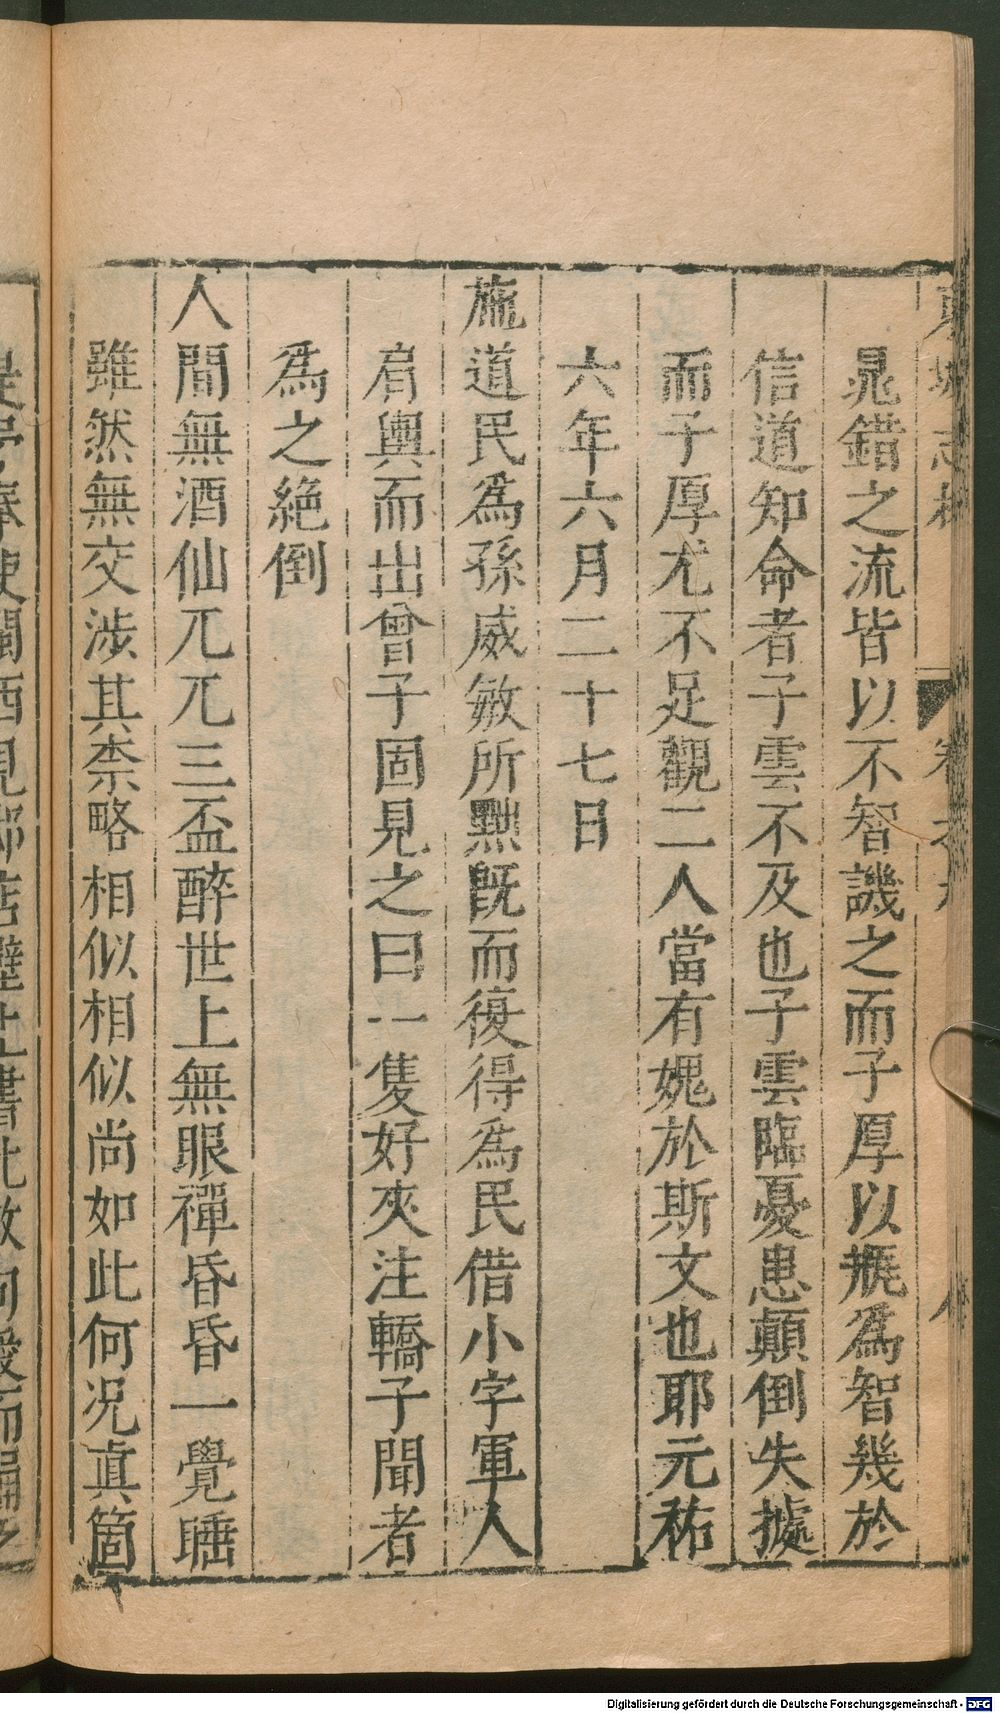 晁錯之流皆以不智譏之而子厚以瓶爲智幾於
信道知命者子雲不及也子雲臨憂患顛倒失據
而子厚尤不足觀二人當有媿於斯文也耶元祐
六年六月二十七日
施道民爲孫威敏所黥旣而復得爲民借小字軍人
肩輿而出曾子固見之曰一隻好夾注轎子聞者
爲之絶倒
人間無酒仙兀兀三盃醉世上無眼禪昏昏一覺睡
雖然無交涉其柰略相似相似尚如此何况眞箇
Digitalisierung gefördert durch die Deutsche Forschungsgemeinschaft - DFG